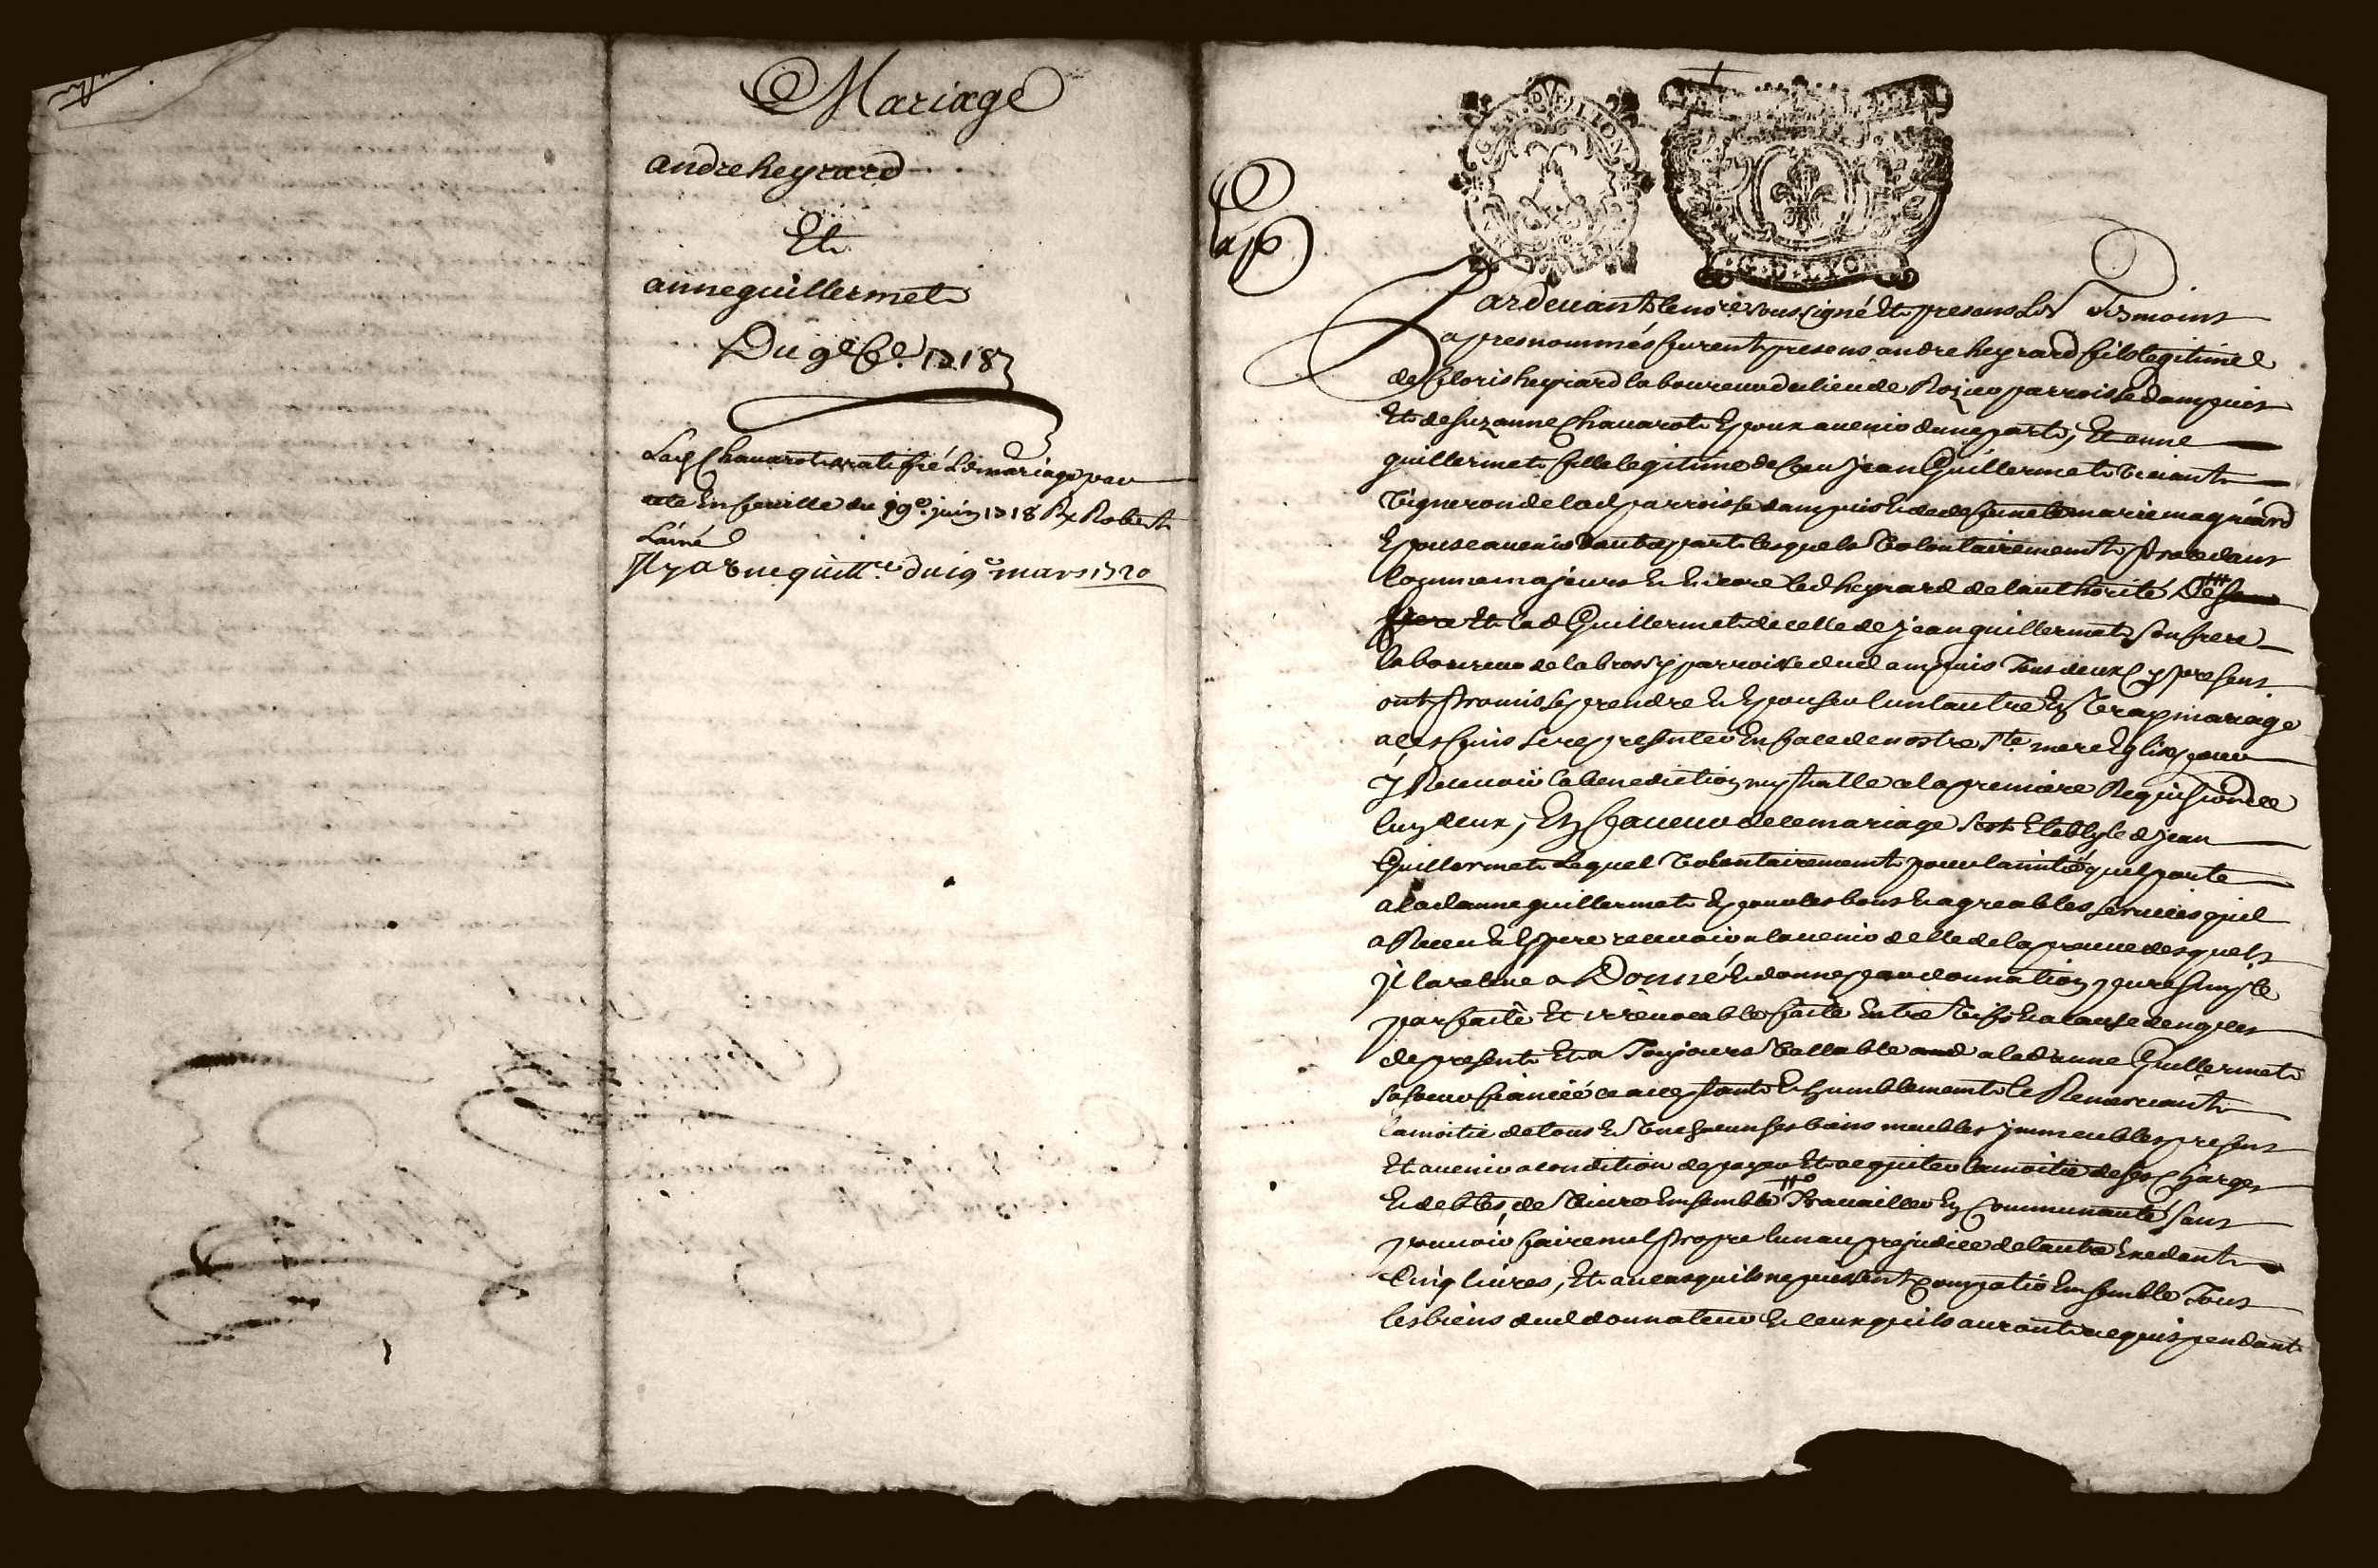 Mariage
andre heyrard
Et
anne guillermet
Du 9e 1718
Lad Chavarot a ratiffié Le mariage par
acte En feuille du 19e juin 1718 Rx Robert
Lainé
Il y a Une quittce du 19e mars 1720
GEN. DE LION
G. DE LYON
Pardevant le nore soussigné Et presens Les Tesmoins
apres nommés furent presens andre heyrard fils legitime
de floris heyrard laboureur du lieu de Rozieu parroisse dampuis
Et de suzanne Chavarot Epoux avenir dune part, Et anne
guillermet fille legitime de feu jean Guillermet vivant
Vigneron de lad parroisse dampuis Et de deffunete marie magnard
Epouse avenir dautre part lesquels Volontairement procedans
comme majeurs Et Encore led heyrard de lauthorité De son
pere Et lad Guillermet de celle de jean guillermet son frere
laboureur de la brossy parroisse dud ampuis Tous deux Cy presens
ont promis se prendre Et Epouser lun lautre En Vray mariage
a ces fins se representer En face de nostre Ste mere Eglise pour
y Recevoir la benediction nuptialle a la premiere Requisition de
lun deux, En faveur de ce mariage sest Etably led jean
Guillermet Lequel Volontairement pour lamitié quil porte
a lad anne guillermet Et pour les bons Et agreables services quil
a Receu Et Espere recevoir a lavenir delle de la preuve desquels
il la releve a Donné Et donne par donnation pure simple
parfaite Et irrevocable faite Entre Vifs Et a cause de nopces
de present Et a Toujours Vallable a lad anne Guillermet
sa soeur fiancée ce acceptant Et humblement le Remerciant
la moitie de tous Et Un chacun ses biens meubles immeubles presens
Et avenir a condition de payer Et acquiter la moitie de ses Charges
Et debtes, de Vivre Ensemble Travailler En Communauté sans
pouvoir faire nul propre lun au prejudice de lautre Excedant
Cinq livres, Et au cas quils ne puissent Compatir Ensemble Tous
les biens dud donnateur Et ceux quils auront acquis pendant